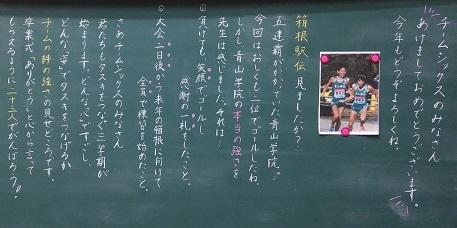 チームシックスのみなさん
あけましておめでとうございます。
今年もどうぞよろしくね。
箱根駅伝見ましたか？
五連覇がかかっていた青山学院。
今回はおしくも二位でゴールしたね。
しかし青山学院の本当の強さを
先生は感じました。それは…
◎負けても、笑顔でゴールし
感謝の一礼をしたこと。
◎大会二日後から来年の箱根に向けて
全員で練習を始めたこと。
さあチームシックスのみなさん
君たちもタスキをつなぐ三学期が
始まります。どんな
どんな姿で
チームの絆の強さの見せどころです。
卒業式「ありがとう」と心から言って
もらえるように二十三人でがんばろう！